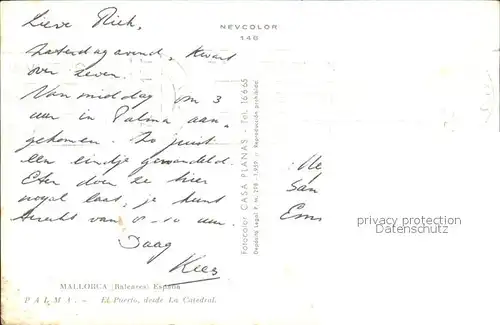 Lieve Riek,
Zaterdagavond, kwart
over zeven.
Van middag om 3
uur in Palma aan-
gekomen. Zo juist
een eindje gewandeld.
Eten doen ze hier
nogal laat, je kunt
terecht van 8-10 uur.
Daag
Kees
MALLORCA (Baleares) España
PALMA. - El Puerto, desde La Catedral.
NEVCOLOR
148
Fotocolor CASA PLANAS - Tel. 16665
Depósito Legal P. M. 298 - 1.959 - Reproducción prohibida
privacy protection
www.oldthing.com